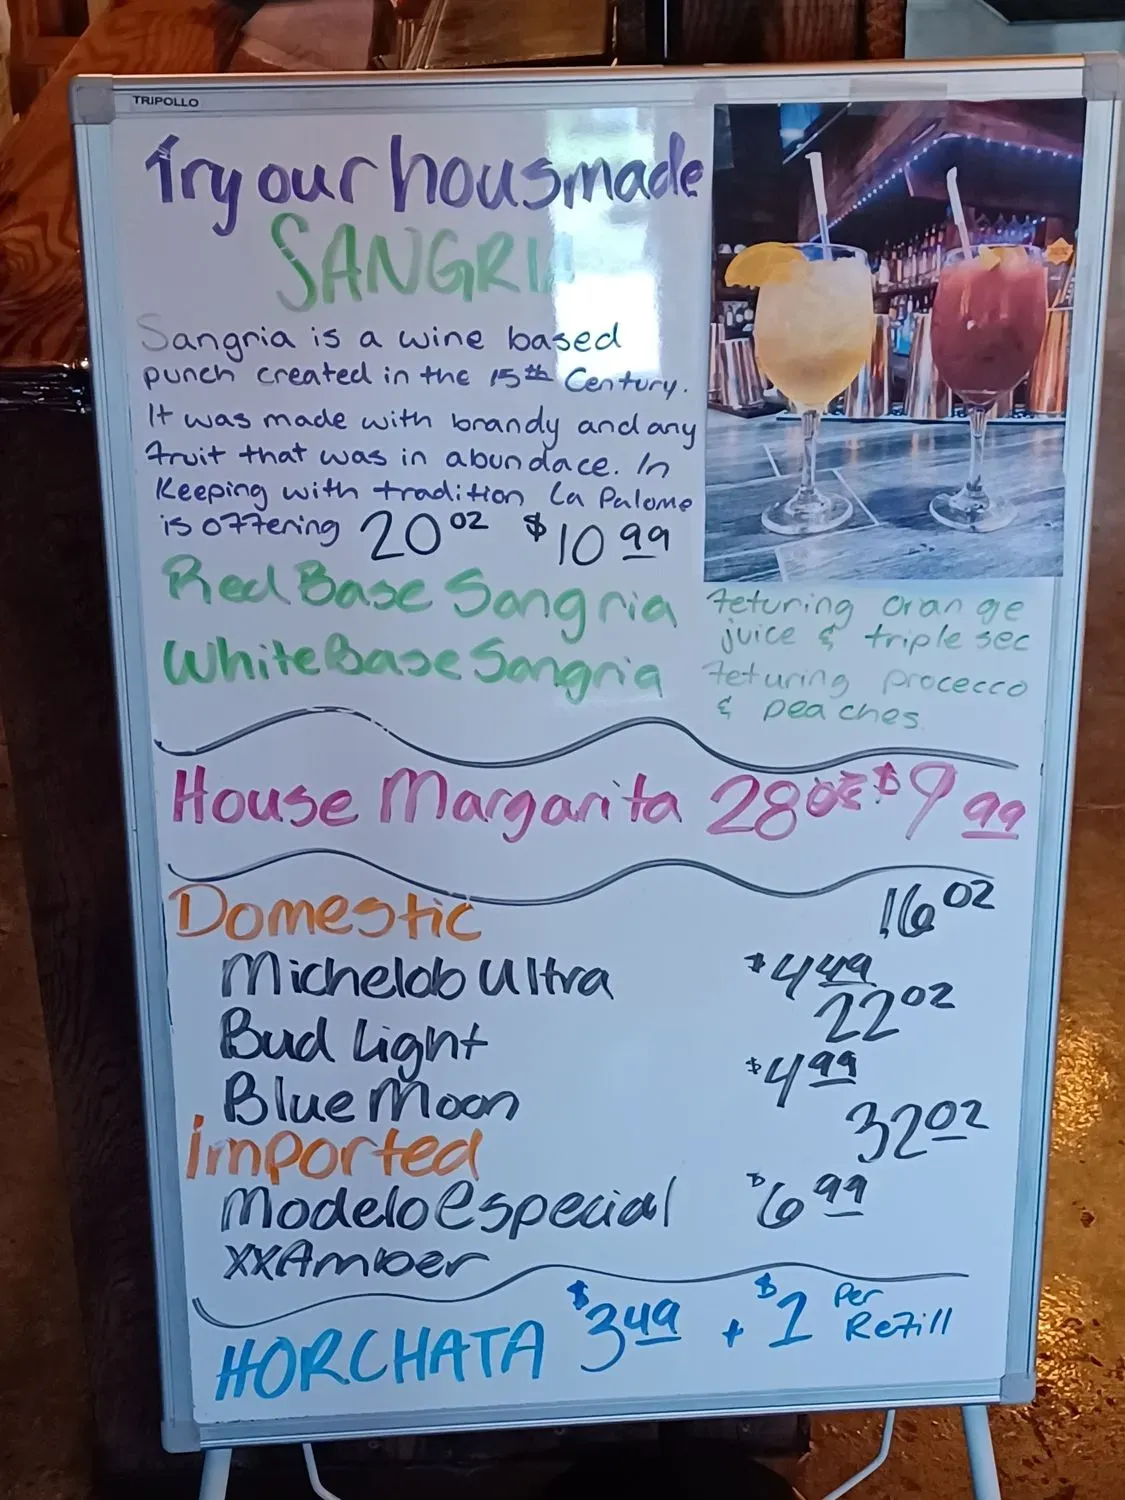 TRIPOLLO
Try our housmade
SANGRIA
Sangria is a wine based
punch created in the 15th Century.
It was made with brandy and any
fruit that was in abundace. In
Keeping with tradition La Paloma
is offering 20 oz $10.99
Red Base Sangria
White Base Sangria
feturing orange
juice & triple sec
feturing procecco
& peaches.
House Margarita 28oz $9.99
Domestic 16 oz
Michelob Ultra $4.49
Bud Light 22 oz
Blue Moon $4.99
Imported 32 oz
Modelo Especial $6.99
XX Amber
HORCHATA $3.49 + $1 Per
Refill